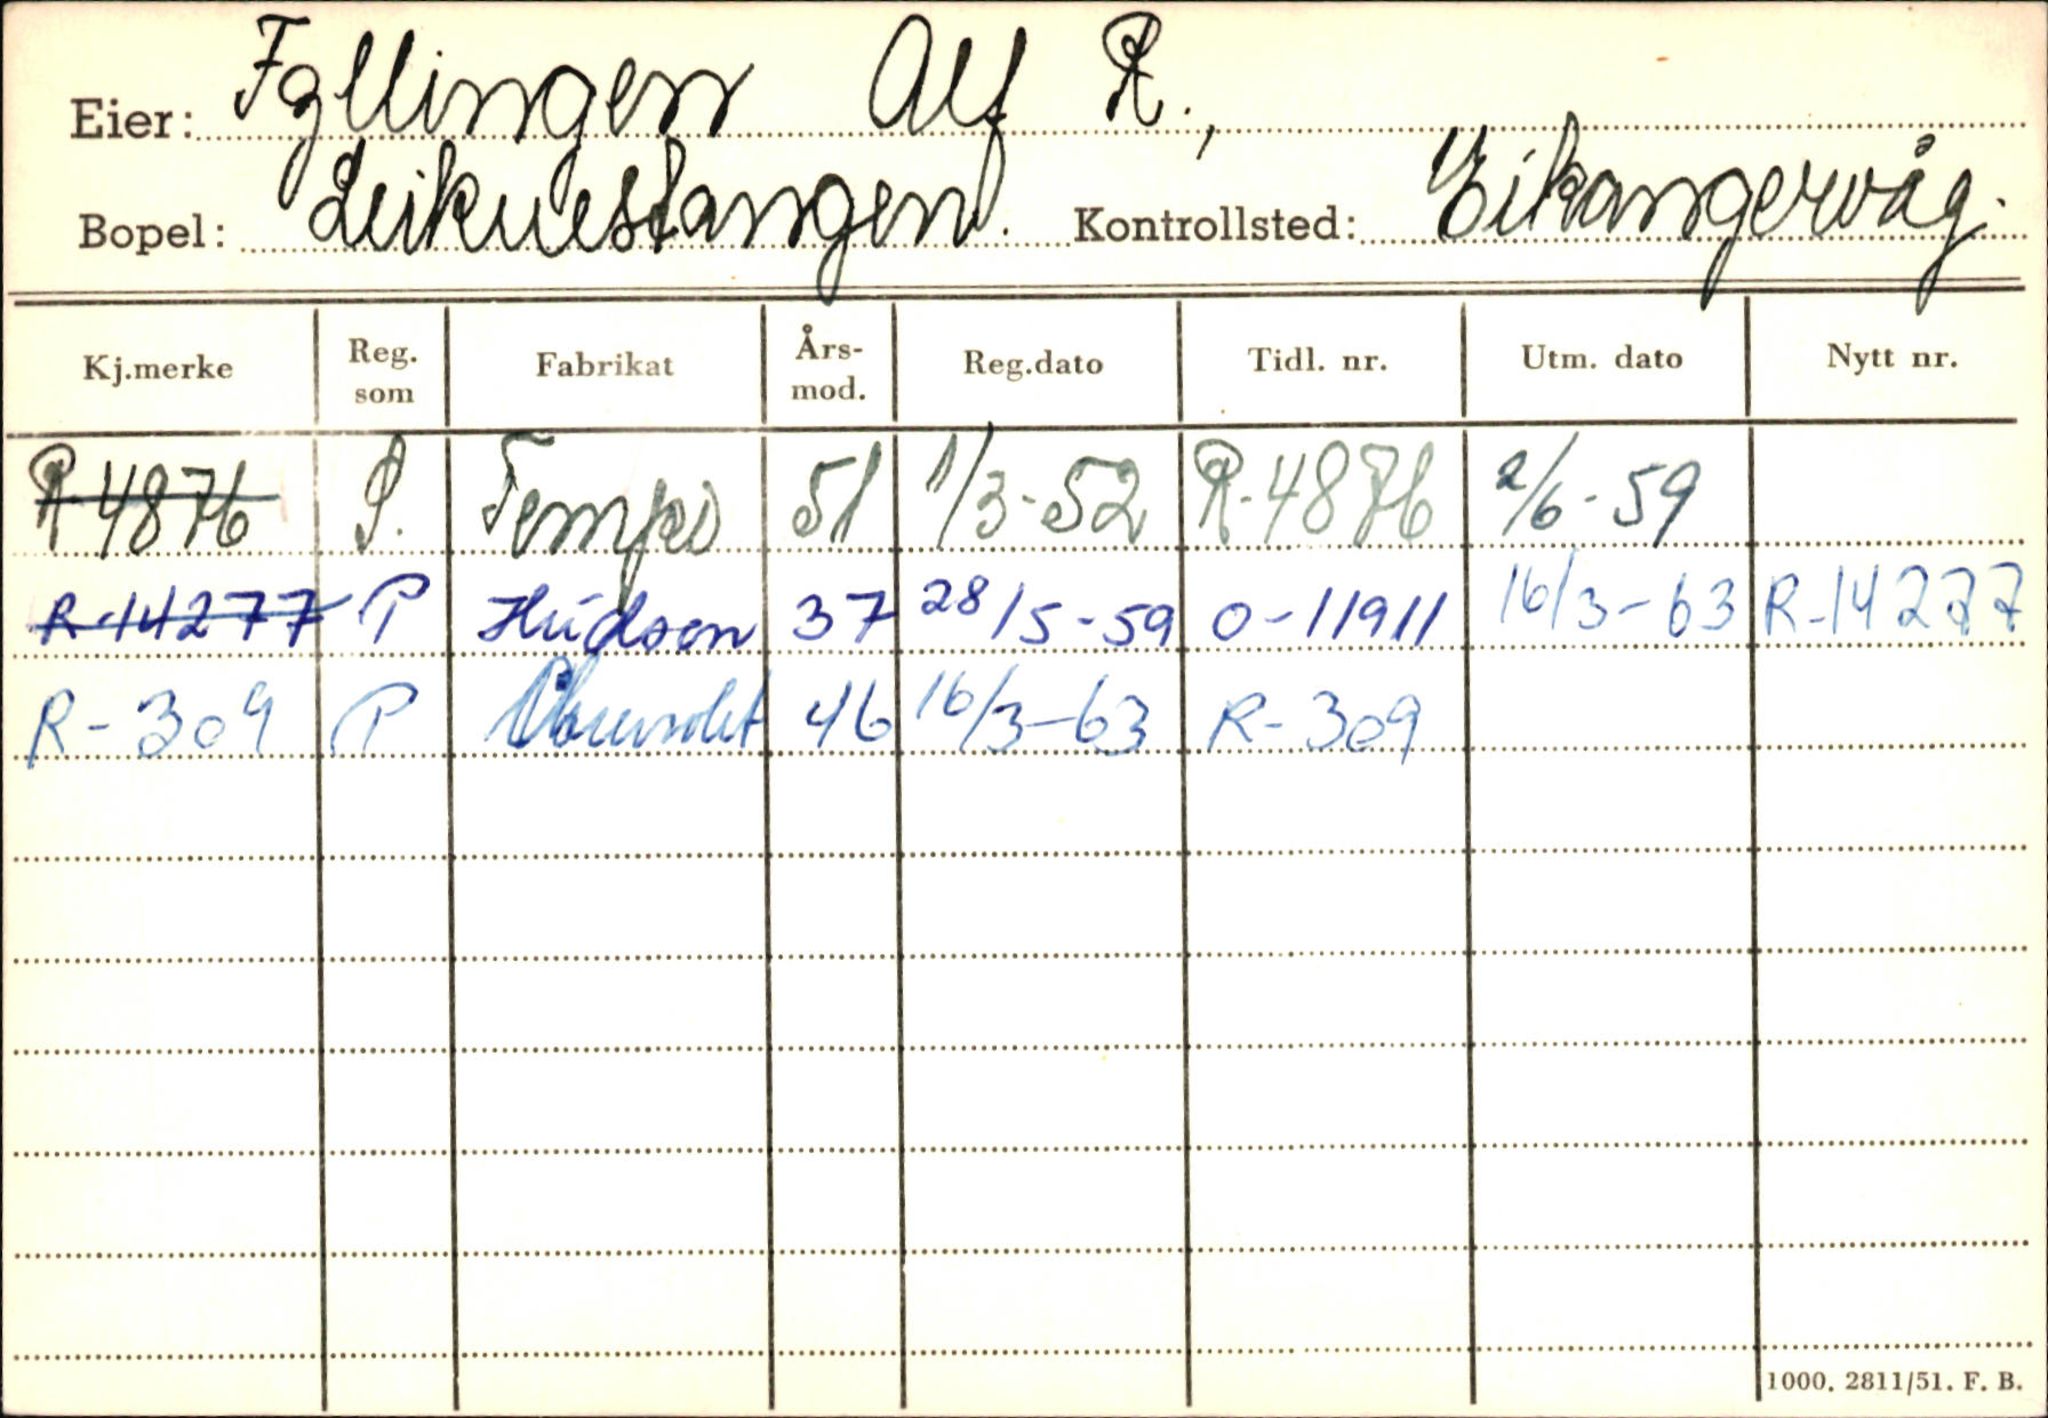 Eier: Fyllingen Alf R.,
Bopel: Leiknestangen. Kontrollsted: Eikangervåg.
Kj.merke Reg. som Fabrikat Års-mod. Reg.dato Tidl. nr. Utm. dato Nytt nr.
R-4876 P. Tempo 51 1/3-52 R-4876 2/6-59
R-14277 P Hudson 37 28/5-59 O-11911 16/3-63 R-14277
R-309 P Chevrolet 46 16/3-63 R-309
1000. 2811/51. F. B.